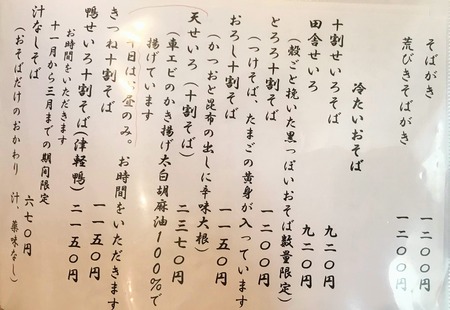 そばがき 一二〇〇円
荒びきそばがき 一二〇〇円
冷たいおそば
十割せいろそば 九二〇円
田舎せいろ 九二〇円
(殻ごと挽いた黒っぽいおそば数量限定)
とろろ十割そば 一二〇〇円
(つけそば、たまごの黄身が入っています)
おろし十割そば 一一五〇円
(かつおと昆布の出しに辛味大根)
天せいろ(十割そば) 二三七〇円
(車エビのかき揚げ太白胡麻油100%で
揚げています
日は、昼のみ。お時間をいただきます
きつね十割そば 一一五〇円
鴨せいろ十割そば(津軽鴨) 二一五〇円
お時間をいただきます
十一月から三月までの期間限定
汁なしそば 六七〇円
(おそばだけのおかわり 汁、薬味なし)